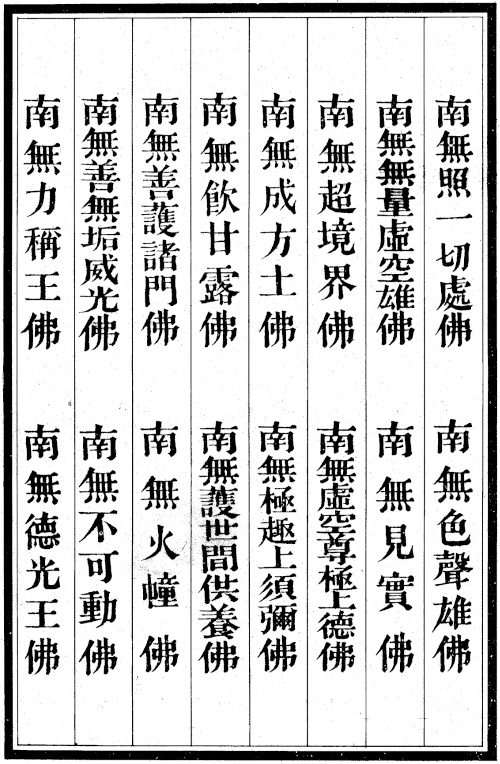 南無照一切處佛
南無色聲雄佛
南無無量虛空雄佛
南無見實佛
南無超境界佛
南無虛空尊極上德佛
南無成方土佛
南無極趣上須彌佛
南無飲甘露佛
南無護世間供養佛
南無善護諸門佛
南無火幢佛
南無善無垢威光佛
南無不可動佛
南無力稱王佛
南無德光王佛